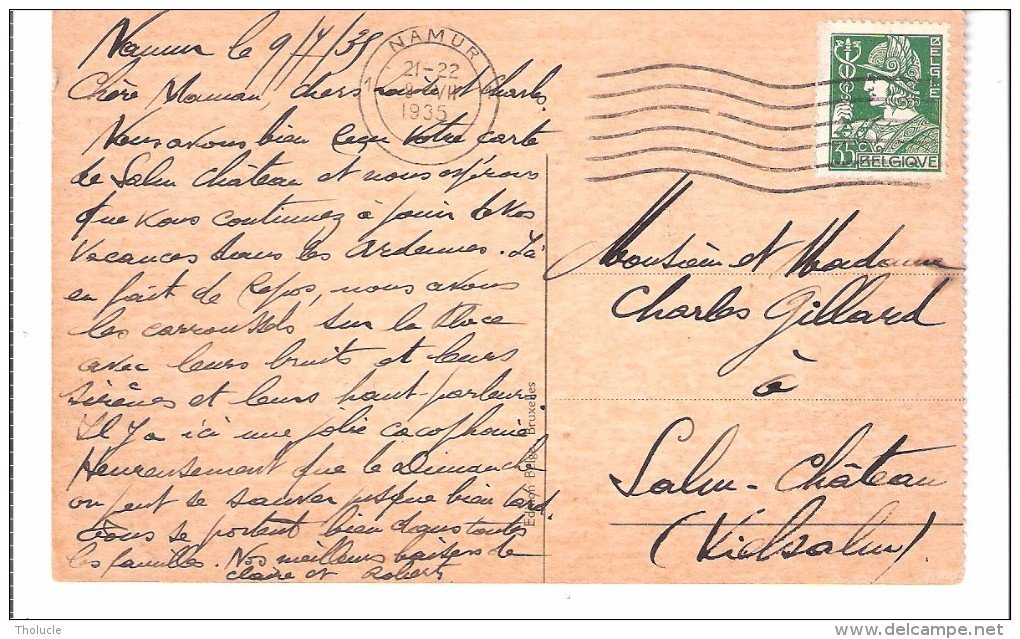 Namur le 9/7/35
Chère Maman, chers et Charles.
Nous avons bien reçu votre carte
de Salm Château et nous espérons
que vous continuez à jouir de vos
vacances dans les Ardennes. Ici
en fait de repos, nous avons
les carroussels sur la Place
avec leurs bruits et leurs
sirènes et leurs haut-parleurs.
Il y a ici une jolie cacophonie
Heureusement que le Dimanche
on peut se sauver jusque bien tard.
Tous se portent bien dans toutes
les familles. Nos meilleurs baisers de
Claire et Robert
NAMUR
1 21-22 1
8 VII
1935
BELGIE
35 c
BELGIQVE
Monsieur et Madame
Charles Gillard
à
Salm-Château
(Vielsalm)
Edition Belge, Bruxelles
Tholucle
delcampe.net